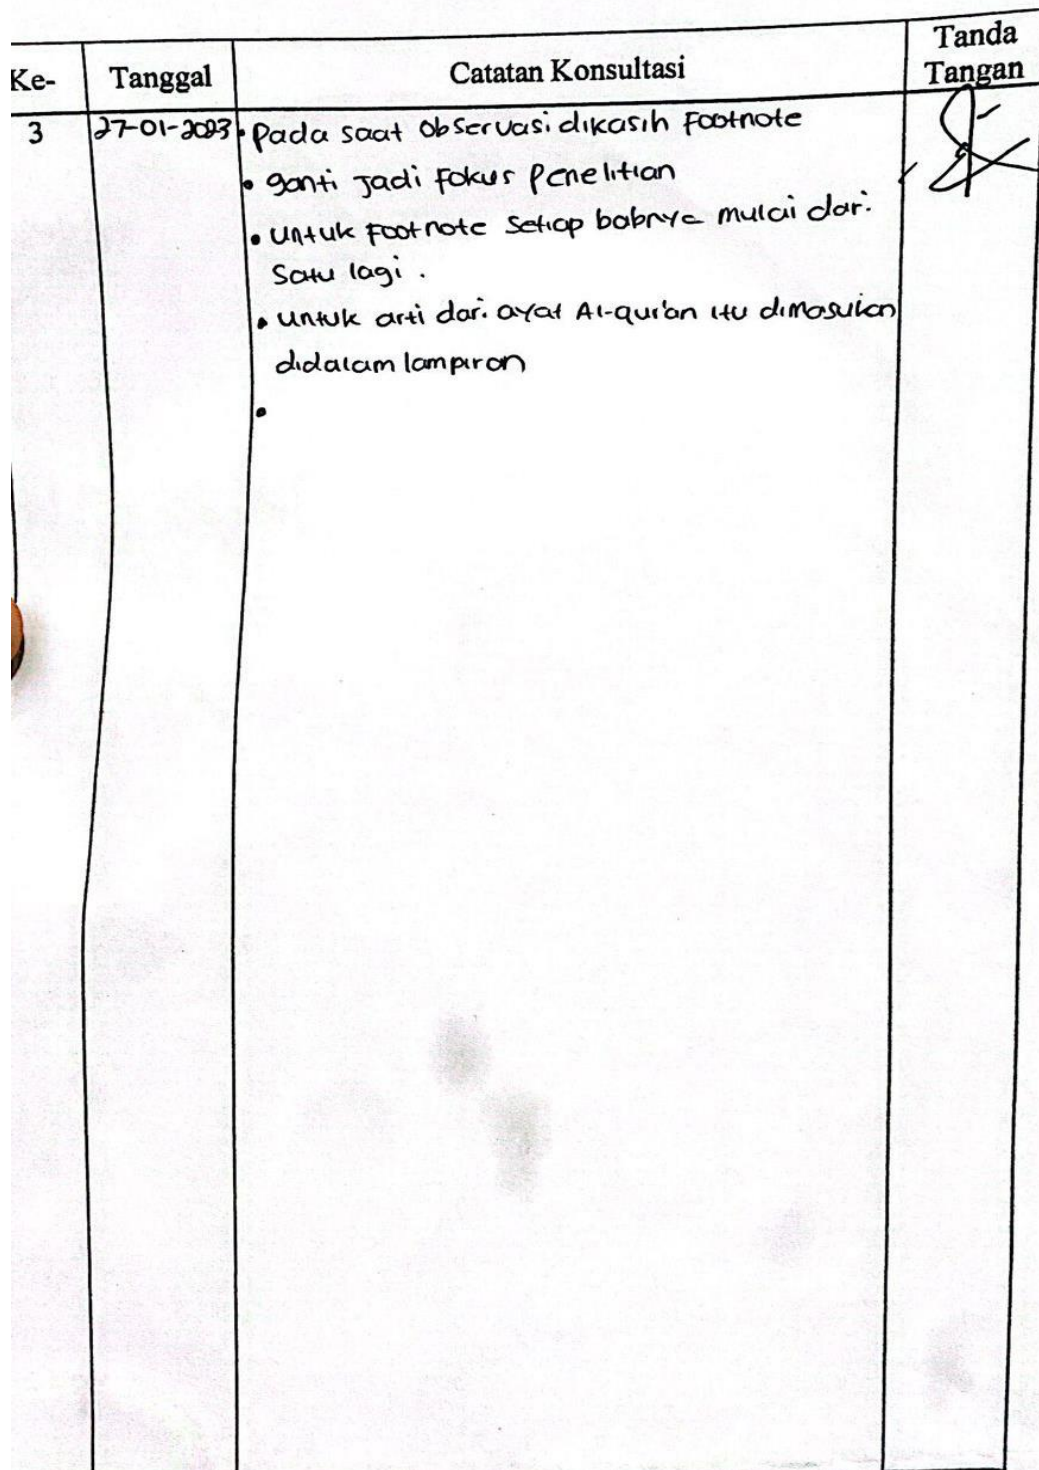 Ke- Tanggal Catatan Konsultasi Tanda Tangan
3 27-01-2023 • Pada saat Observasi dikasih Footnote
• ganti Jadi Fokus Penelitian
• Untuk Footnote Setiap babnya mulai dari
Satu lagi .
• Untuk arti dari ayat Al-qur'an itu dimasukan
didalam lampiran
•